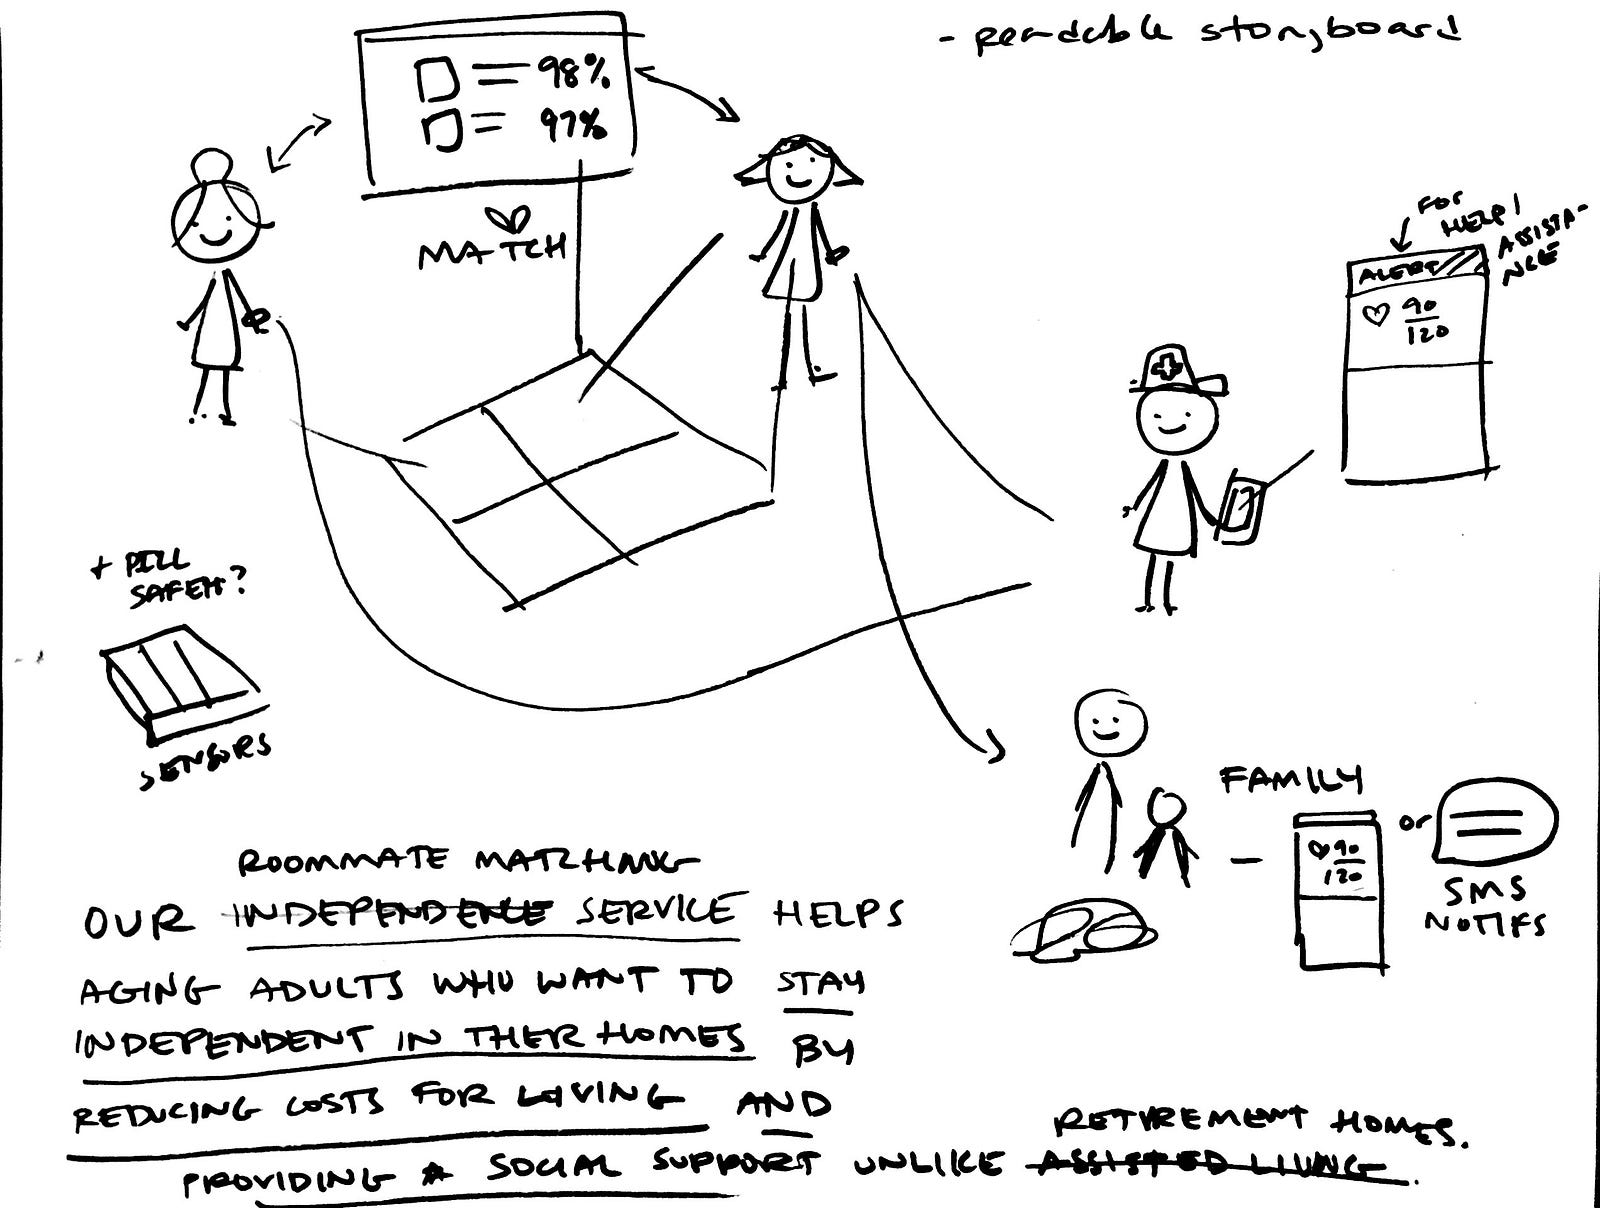 - readable storyboard
= 98%
= 97%
MATCH
FOR
HELP/
ASSISTA-
NCE
ALERT
90
120
+ PILL
SAFETY?
SENSORS
FAMILY
90
120
or
SMS
NOTIFS
ROOMMATE MATCHING
OUR INDEPENDENCE SERVICE HELPS
AGING ADULTS WHO WANT TO STAY
INDEPENDENT IN THEIR HOMES BY
REDUCING COSTS FOR LIVING AND
RETIREMENT HOMES.
PROVIDING A SOCIAL SUPPORT UNLIKE ASSISTED LIVING.